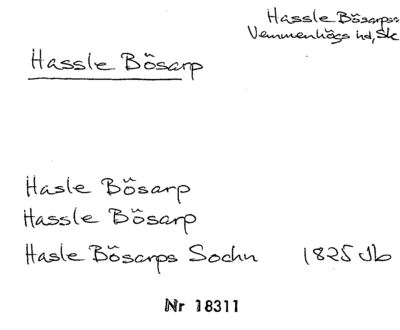 Hassle Bösarps
Vemmenhögs hd, Sk
Hassle Bösarp
Hasle Bösarp
Hassle Bösarp
Hasle Bösarps Sochn 1825 Jb
Nr 18311